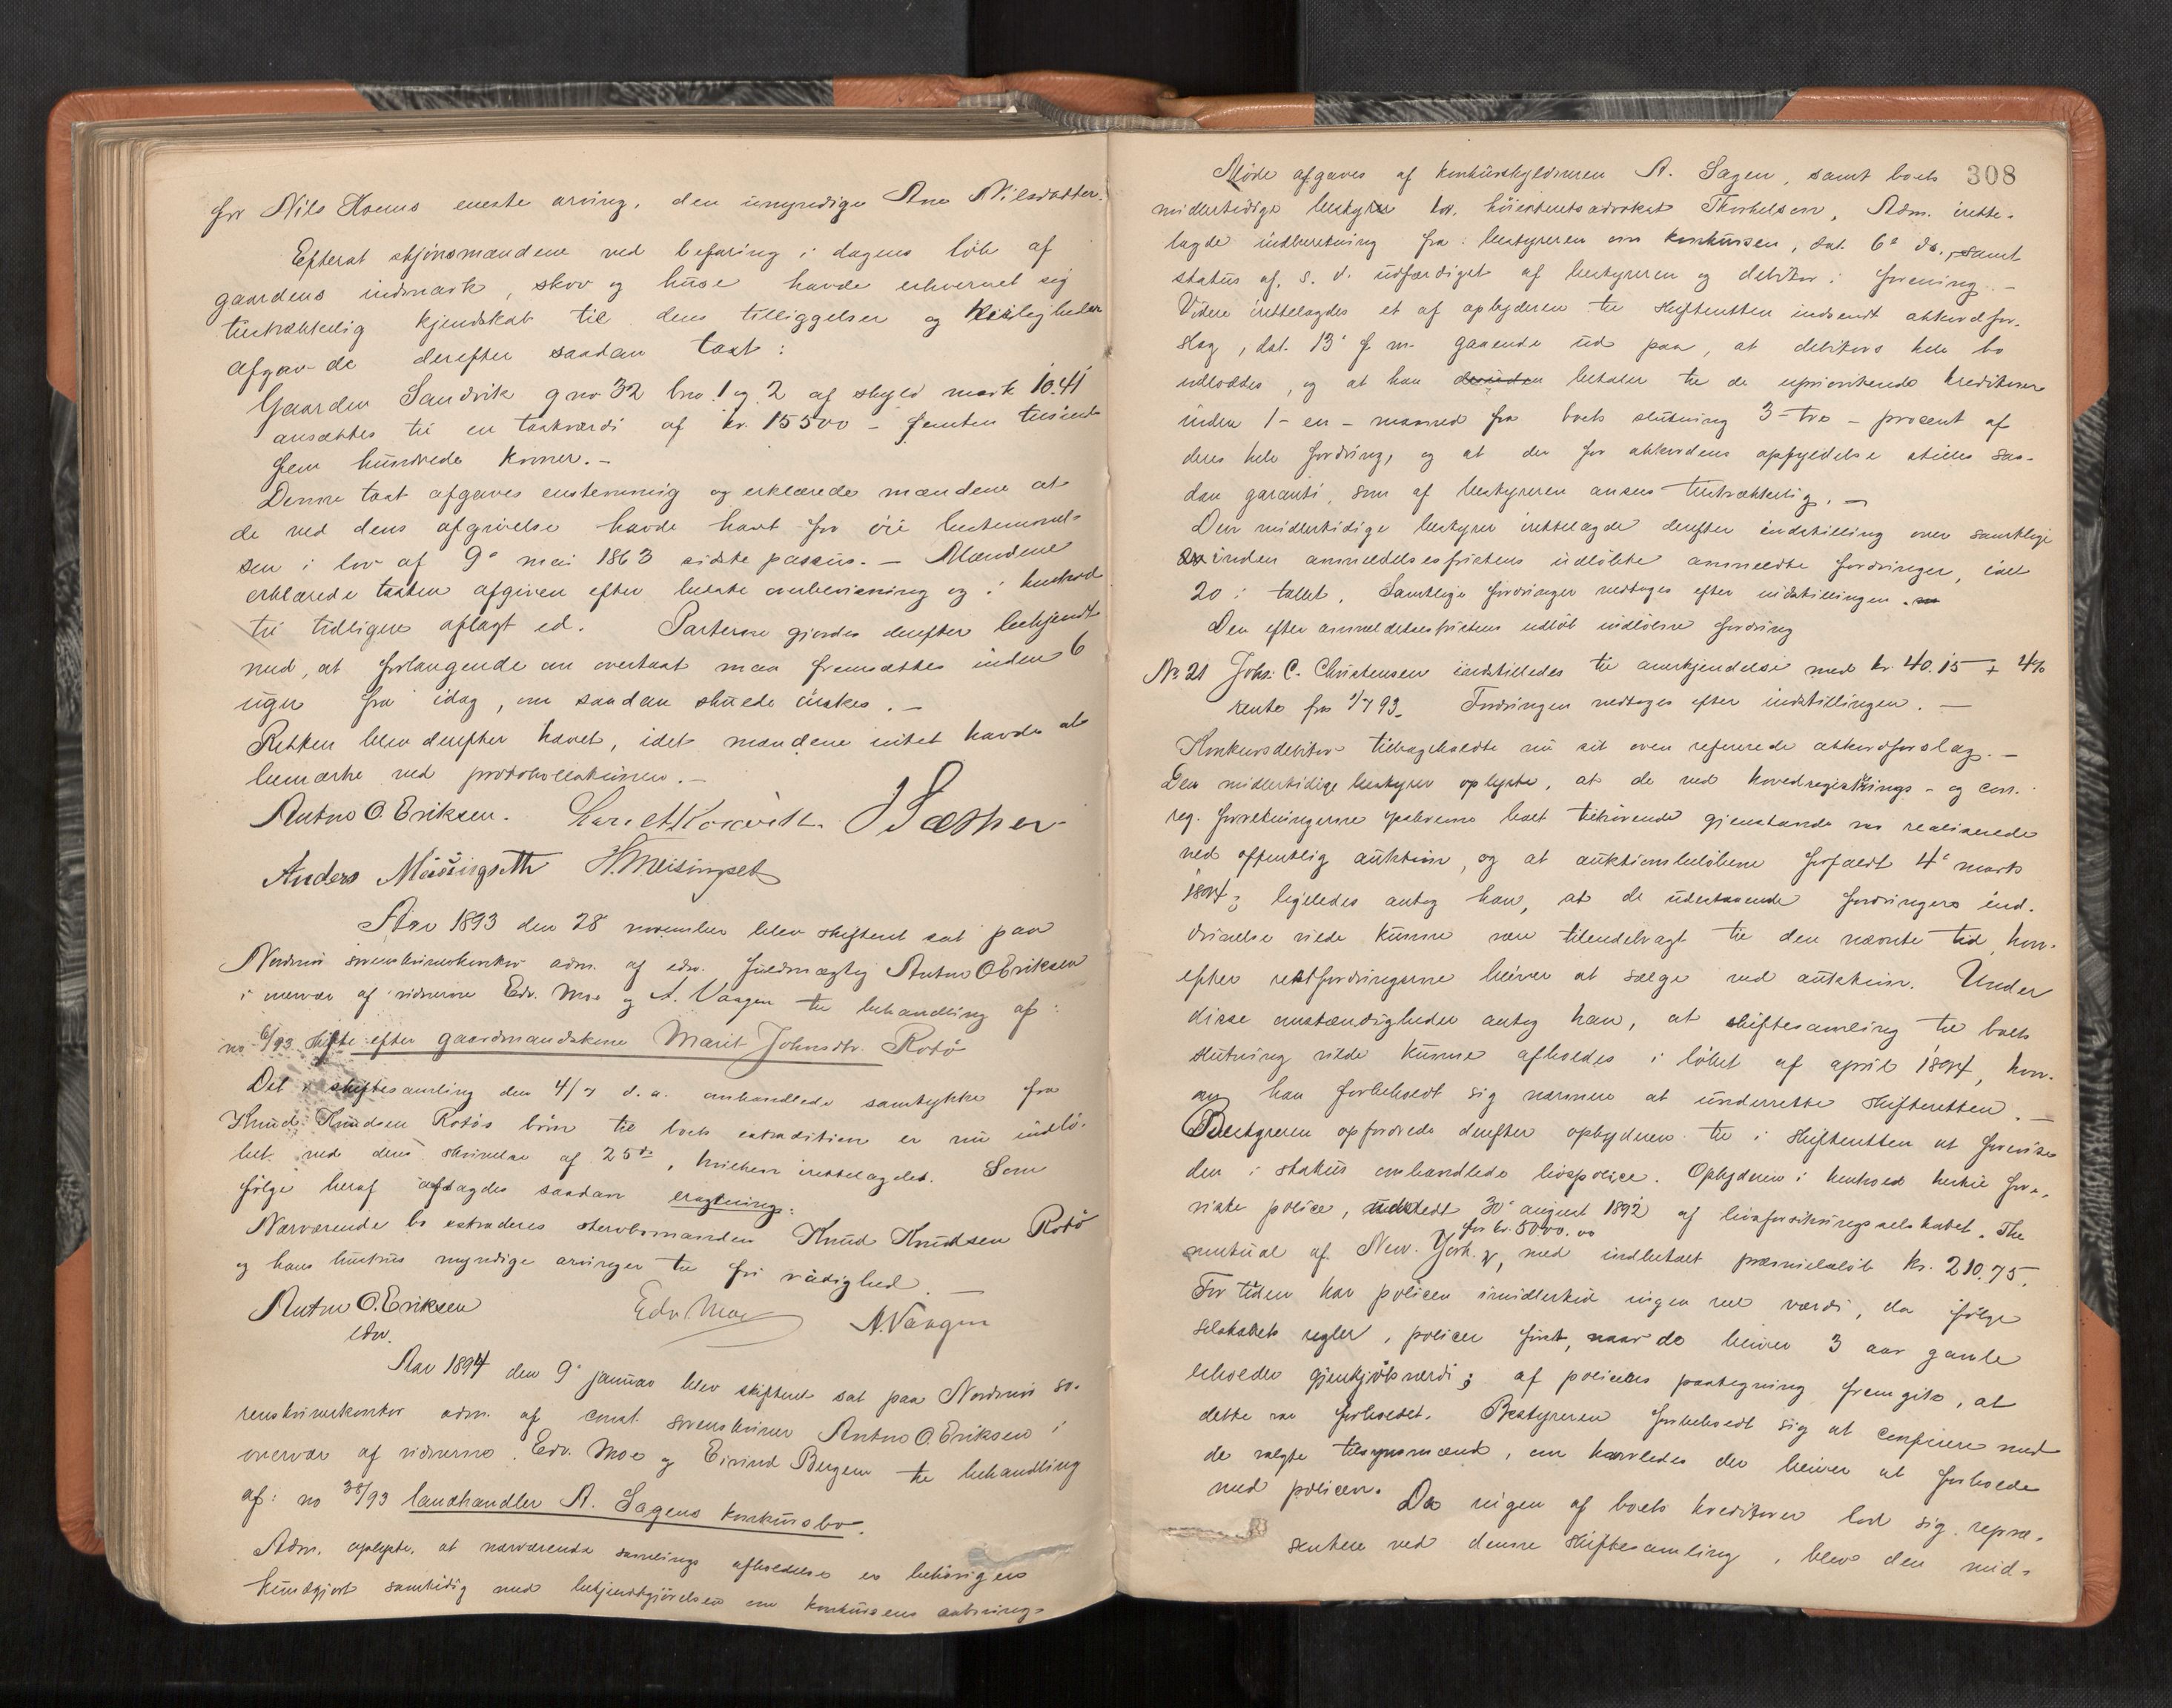 for Nils Hoems eneste arving, den umyndige Ane Nilsdatter.
Efterat skjønsmændene ved befaring i dagens løb af
gaardens indmark, skov og huse havde erhvervet sig
tilstrækkelig kjendskab til dens tilliggelser og herligheder
afgav de derefter saadan taxt:
Gaarden Sandvik gno 32 bno 1 og 2 af skyld mark 10.41
ansættes til en taxtværdi af kr. 15500 – femten tusinde
fem hundrede kroner. –
Denne taxt afgaves enstemmig og erklærede mændene at
de ved dens afgivelse havde havt for øie bestemmel-
sen i lov af 9de mai 1863 sidste passus. – Mændene
erklærede taxten afgiven efter bedste overbevisning og i henhold
til tidligere aflagt ed. Parterne gjordes derefter bekjendt
med, at forlangende om overtaxt maa fremsættes inden 6
uger fra idag, om saadan skulde ønskes. –
Retten blev derefter hævet, idet mændene intet havde at
bemærke ved protokollationen. –
Anton O. Eriksen. J Sæther
Anders H. Meisingset
Aar 1893 den 28 november blev skifteret sat paa
Nordmøre sorenskriverkontor adm. af edsv. fuldmægtig Anton O Eriksen
i overvær af vidnerne Edv. Moe og A. Vaagen til behandling af:
no 6/93 Skifte efter gaardmandskone Marit Johnsdtr. Rotø
Det i skiftesamling den 4/7 d. a. omhandlede samtykke fra
Knud Knudsen Rotøs børn til boets extradition er nu indlø-
bet med dens skrivelse af 25de, hvilken irettelagdes. Som
følge heraf afsagdes saadan eragtning:
Nærværende bo extraderes sterbomanden Knud Knudsen Rotø
og hans hustrus myndige arvinger til fri raadighed. –
Anton O. Eriksen Edv Moe A. Vaagen
edsv.
Aar 1894 den 9de januar blev skifteret sat paa Nordmøre so-
renskriverkontor adm. af const. sorenskriver Anton O. Eriksen i
overvær af vidnerne Edv. Moe og Eivind Bergem til behandling
af: no 38/93 landhandler A. Sagens konkursbo.
Adm. oplyste, at nærværende samlings afholdelse er behørigen
kundgjort samtidig med bekjendtgjørelsen om konkursens aabning.
308
Møde afgaves af konkursskyldneren A. Sagen, samt boets
midlertidige bestyrer hr. høiesteretsadvokat Thorkelsen, Adm. irette-
lagde indberetning fra bestyreren om konkursen, dat. 6te ds., samt
status af s. d. udfærdiget af bestyreren og debitor i forening. –
Videre irettelagdes et af opbyderen til skifteretten indsendt akkordfor-
slag, dat. 13de f. m. gaaende ud paa, at debitors hele bo
udloddes, og at han betaler til de uprioriterede kreditorer
inden 1 – en – maaned fra boets slutning 3 – tre – procent af
deres hele fordring, og at der for akkordens opfyldelse stilles saa-
dan garanti, som af bestyreren ansees tilstrækkelig. –
Den midlertidige bestyrer irettelagde derefter indstilling over samtlige
inden anmeldelsesfristens udløb anmeldte fordringer, ialt
20 i tallet. Samtlige fordringer vedtages efter indstillingen.
Den efter anmeldelsesfristens udløb indløbne fordring
No 21 Johs. C. Christensen indstilledes til anerkjendelse med kr. 40.15 + 4%
rente fra 1/7 93. Fordringen vedtages efter indstillingen. –
Konkursdebitor tilbageholdte nu sit oven refererede akkordforslag. –
Den midlertidige bestyrer oplyste, at de ved hovedregistrerings- og con.
reg. forretningerne boet tilhørende gjenstande var realiserede
ved offentlig auktion, og at auktionsbeløbene forfaldt 4de marts
1894; ligeledes antog han, at de udestaaende fordringers ind-
drivelse vilde kunne være tilendebragt til den nævnte tid, hvor-
efter restfordringerne bliver at sælge ved auktion. Under
disse omstændigheder antog han, at skiftesamling til boets
slutning vilde kunne afholdes i løbet af april 1894, hvor-
om han forbeholdt sig nærmere at underrette skifteretten. –
Bestyreren opfordrede derefter opbyderen til i skifteretten at forevise
den i status omhandlede livspolice. Opbyderen i henhold hertil fore-
viste police, udstedt 30te august 1892 af livsforsikringsselskabet The
for kr. 5000.00
mutual af New-York, med indbetalt præmiebeløb kr. 210.75.
For tiden har policen imidlertid ingen reel værdi, da ifølge
selskabets regler, policer først, naar de bliver 3 aar gamle
beholder gjenkjøbsværdi; af policens paategning fremgik, at
dette var forholdet. Bestyreren forbeholdt sig at conferere med
de valgte tilsynsmænd, om hvorledes der bliver at forholde
med policen. Da ingen af boets kreditorer lod sig repræ-
sentere ved denne skiftesamling, blev den mid-